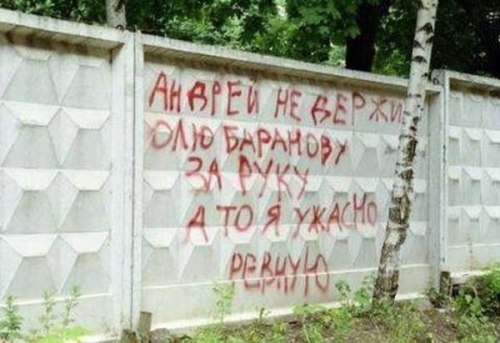 АНДРЕЙ НЕ ДЕРЖИ
ОЛЮ БАРАНОВУ
ЗА РУКУ
А ТО Я УЖАСНО
РЕВНУЮ